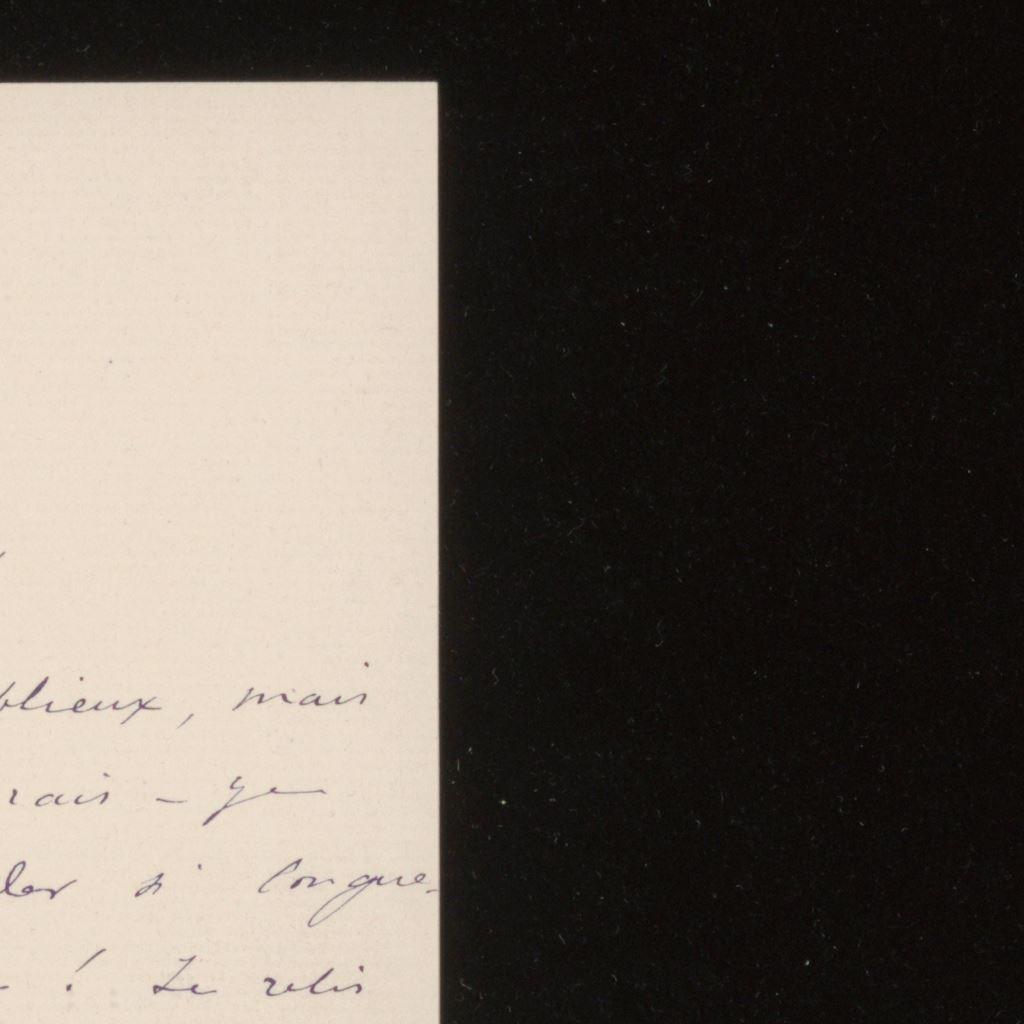 blieux, mais
rais - je
ler si longue-
! Je relis